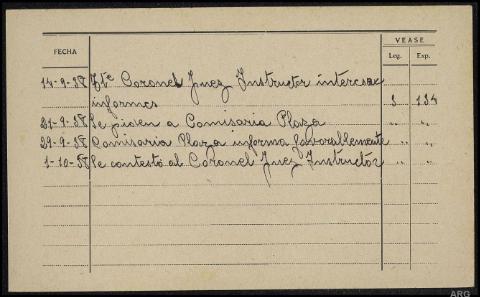 VEASE
FECHA Leg. Exp.
14-9-38 Fte Coronel Juez Instructor interesa
informes 3 134
21-9-38 Se piden a Comisaria Plaza " "
29-9-38 Comisaria Plaza informa favorablemente " "
1-10-38 Se contestó al Coronel Juez Instructor " "
ARG